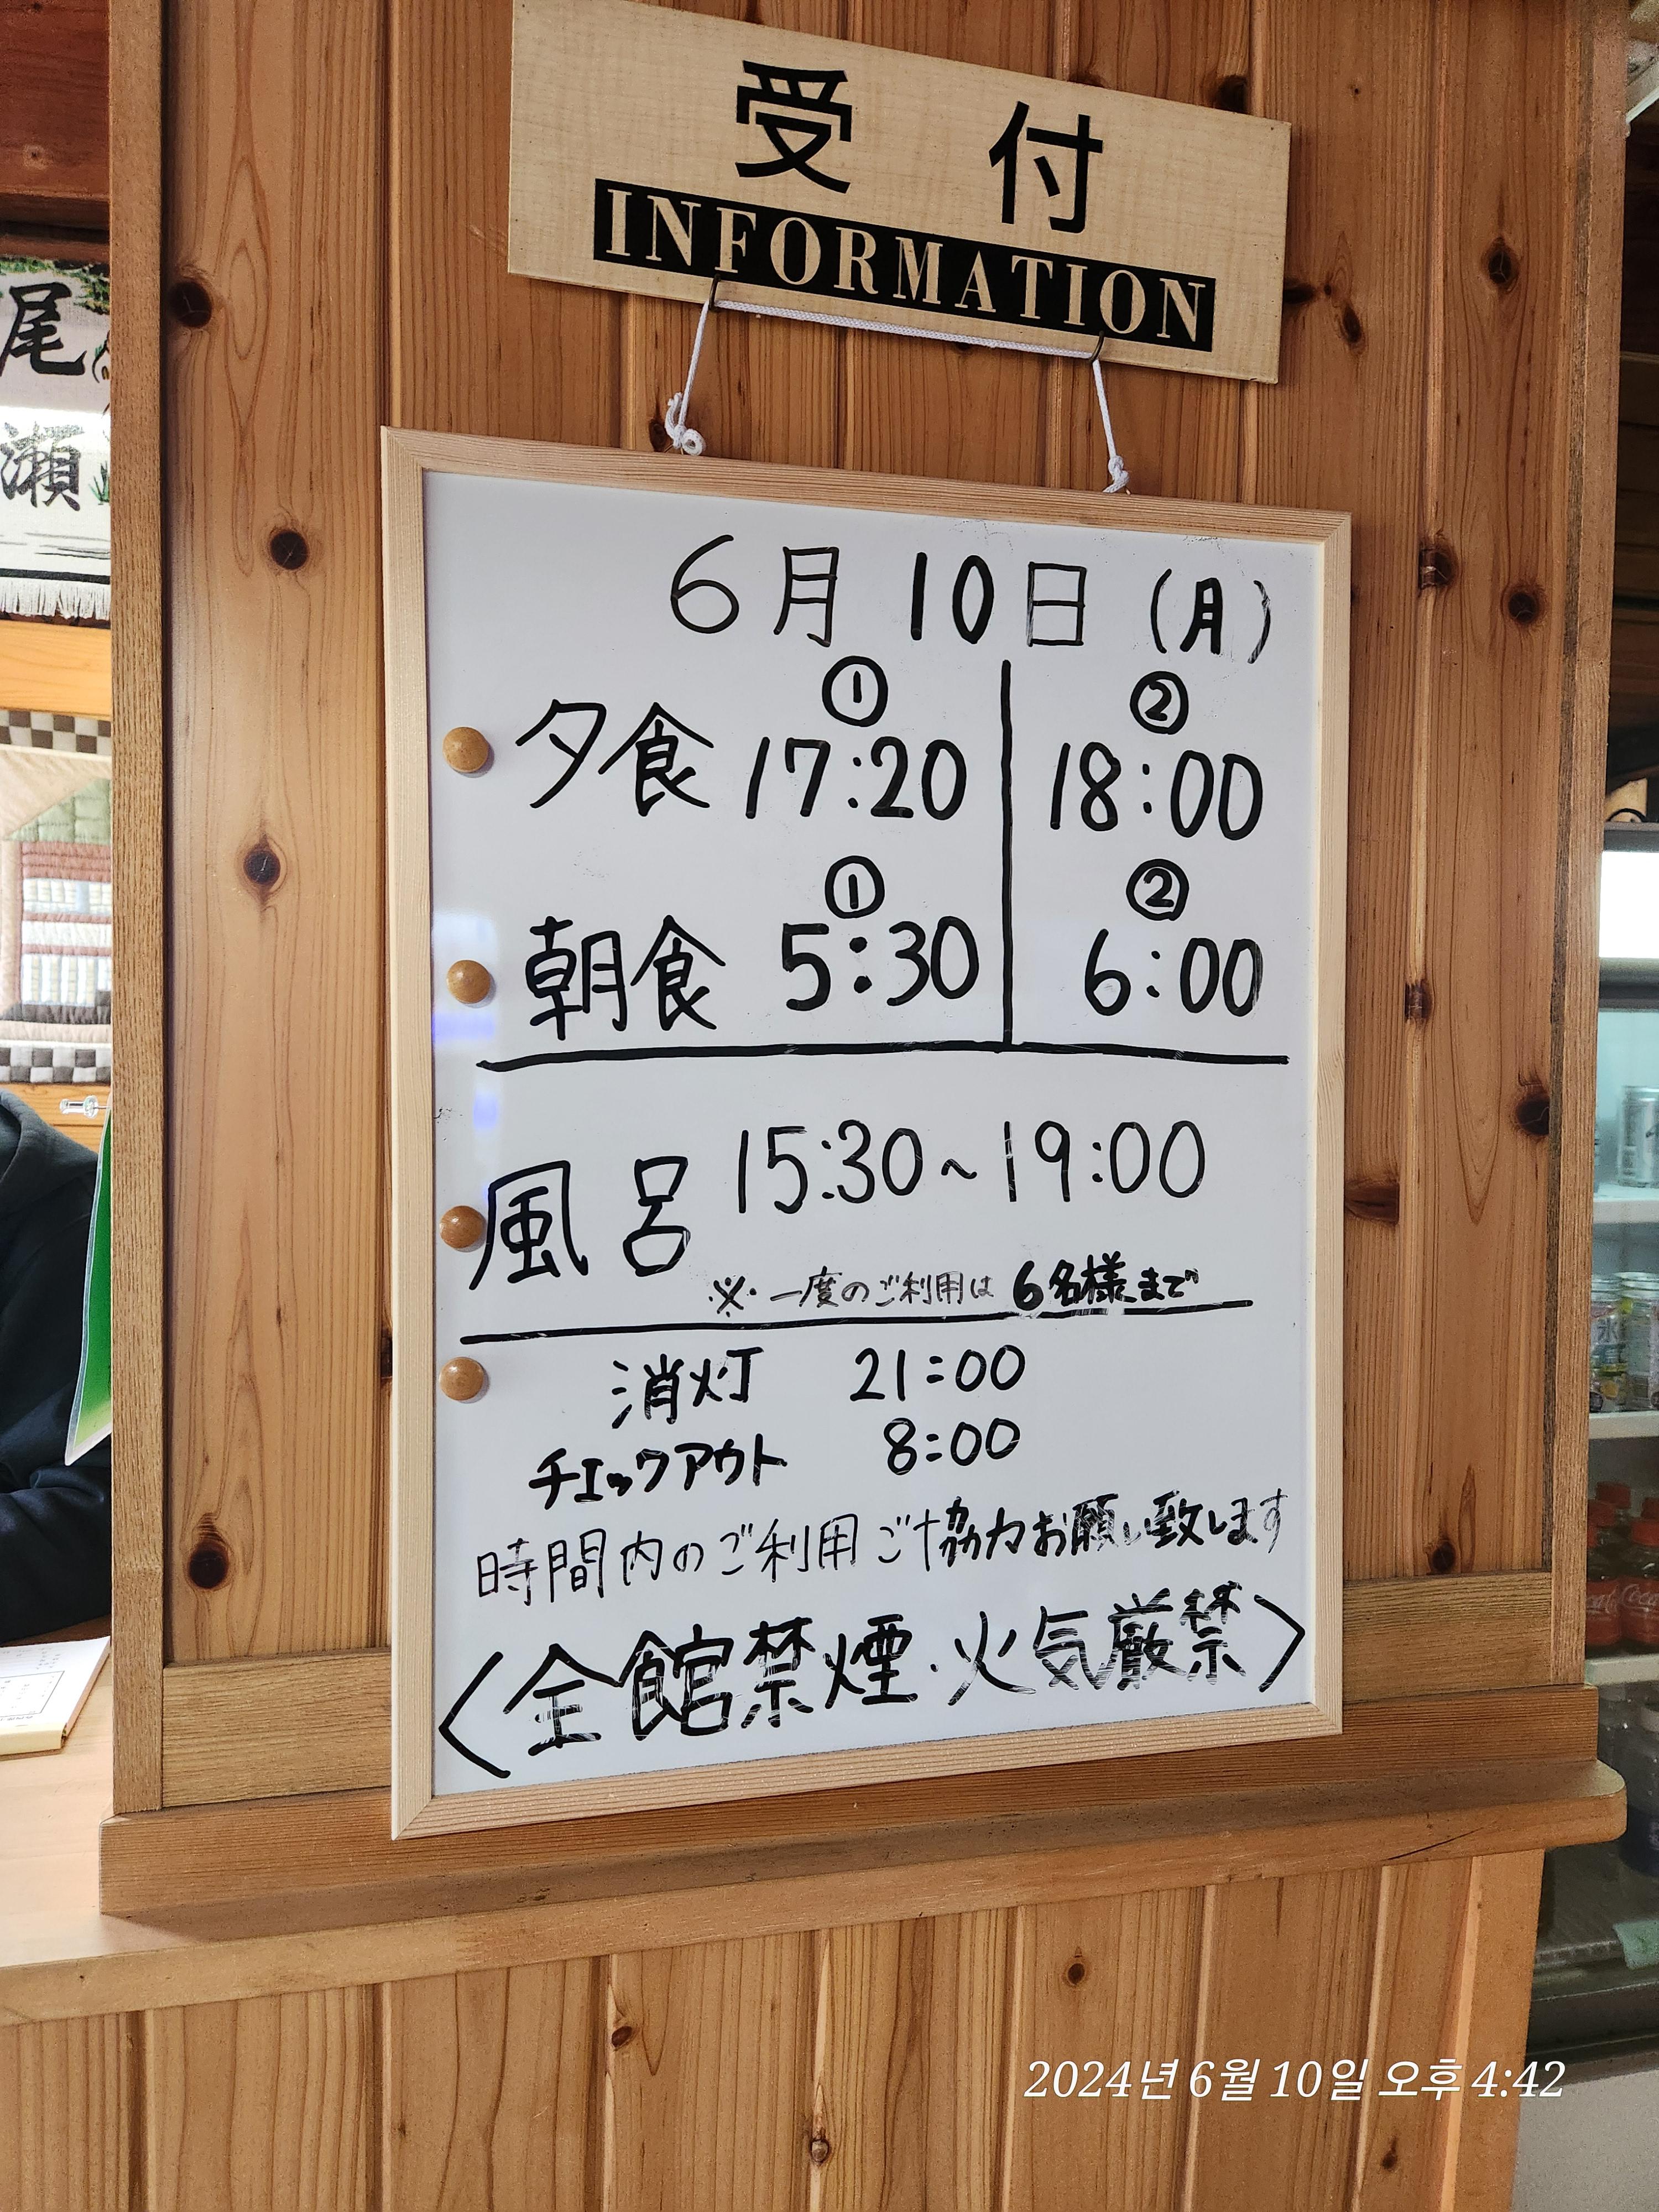 受付
INFORMATION
尾
瀬
6月10日(月)
① ②
夕食 17:20 18:00
① ②
朝食 5:30 6:00
風呂 15:30~19:00
※一度のご利用は6名様まで
消灯 21:00
チェックアウト 8:00
時間内のご利用ご協力お願い致します
〈全館禁煙・火気厳禁〉
2024년 6월 10일 오후 4:42